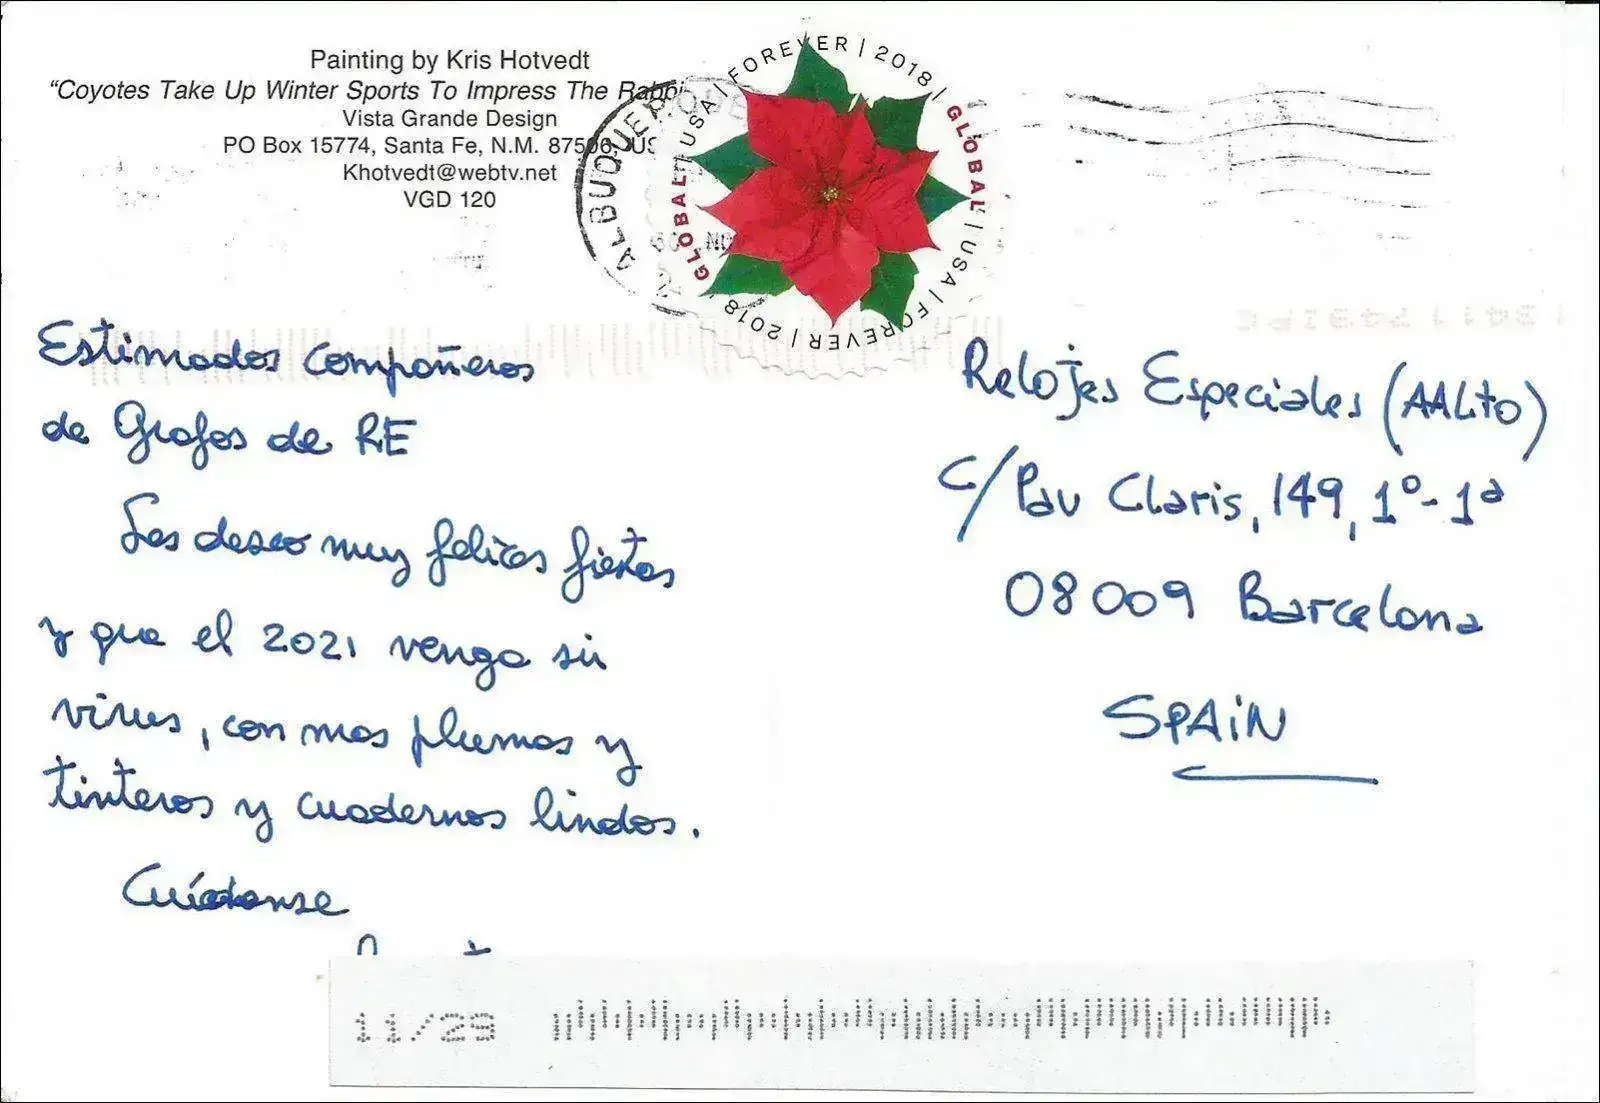 Painting by Kris Hotvedt
"Coyotes Take Up Winter Sports To Impress The
Vista Grande Design
PO Box 15774, Santa Fe, N.M.
Khotvedt@webtv.net
VGD 120
ALBUQUERQUE
30 NOV
GLOBAL | USA | FOREVER | 2018 | GLOBAL | USA | FOREVER | 2018
Estimados compañeros
de Grafos de RE
Les deseo muy felices fiestas
y que el 2021 venga sin
virus, con mas plumas y
tinteros y cuadernos lindos.
Cuídense
Relojes Especiales (AALTO)
C/ Pau Claris, 149, 1º-1ª
08009 Barcelona
SPAIN
11/29